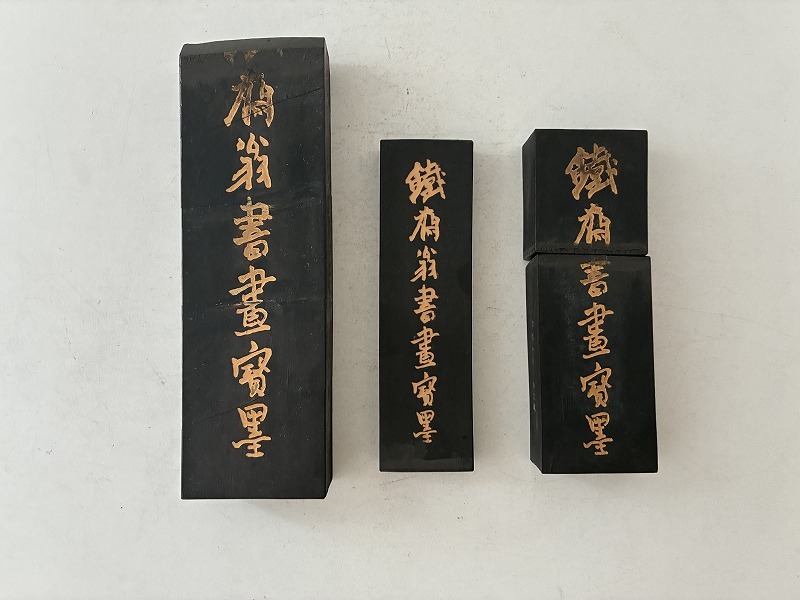 齋翁書畫寶墨
鐵齋翁書畫寶墨
鐵齋
書畫寶墨